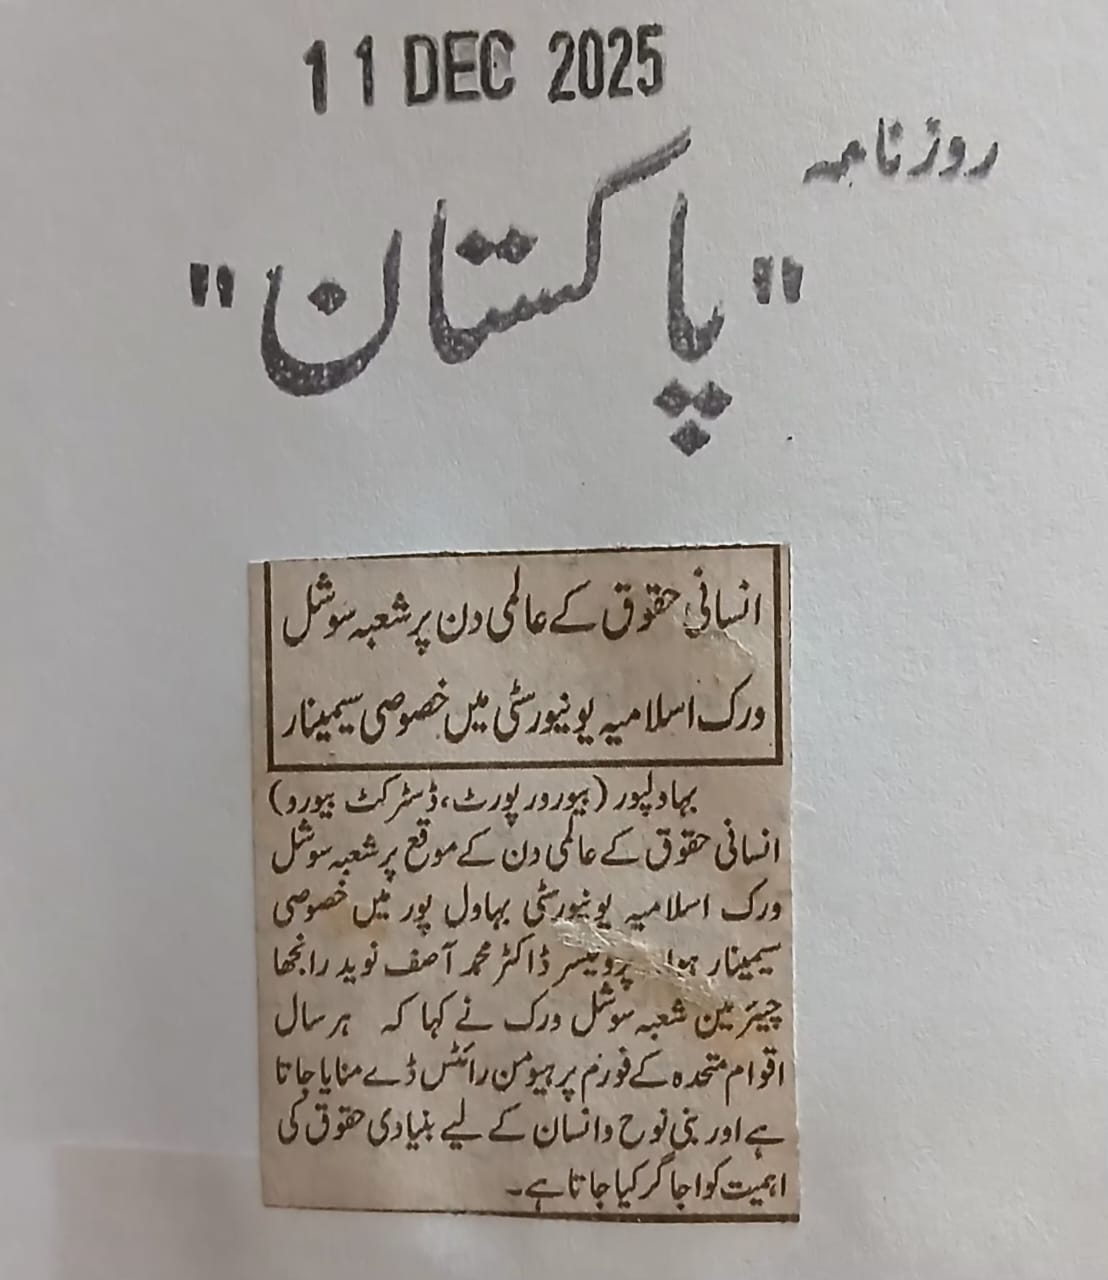 11 DEC 2025
روزنامہ
"پاکستان"
انسانی حقوق کے عالمی دن پر شعبہ سوشل
ورک اسلامیہ یونیورسٹی میں خصوصی سیمینار
بہاولپور (بیورورپورٹ، ڈسٹرکٹ بیورو)
انسانی حقوق کے عالمی دن کے موقع پر شعبہ سوشل
ورک اسلامیہ یونیورسٹی بہاول پور میں خصوصی
سیمینار ہوا پروفیسر ڈاکٹر محمد آصف نوید رانجھا
چیئرمین شعبہ سوشل ورک نے کہا کہ ہر سال
اقوام متحدہ کے فورم پر ہیومن رائٹس ڈے منایا جاتا
ہے اور بنی نوح وانسان کے لیے بنیادی حقوق کی
اہمیت کو اجاگر کیا جاتا ہے۔